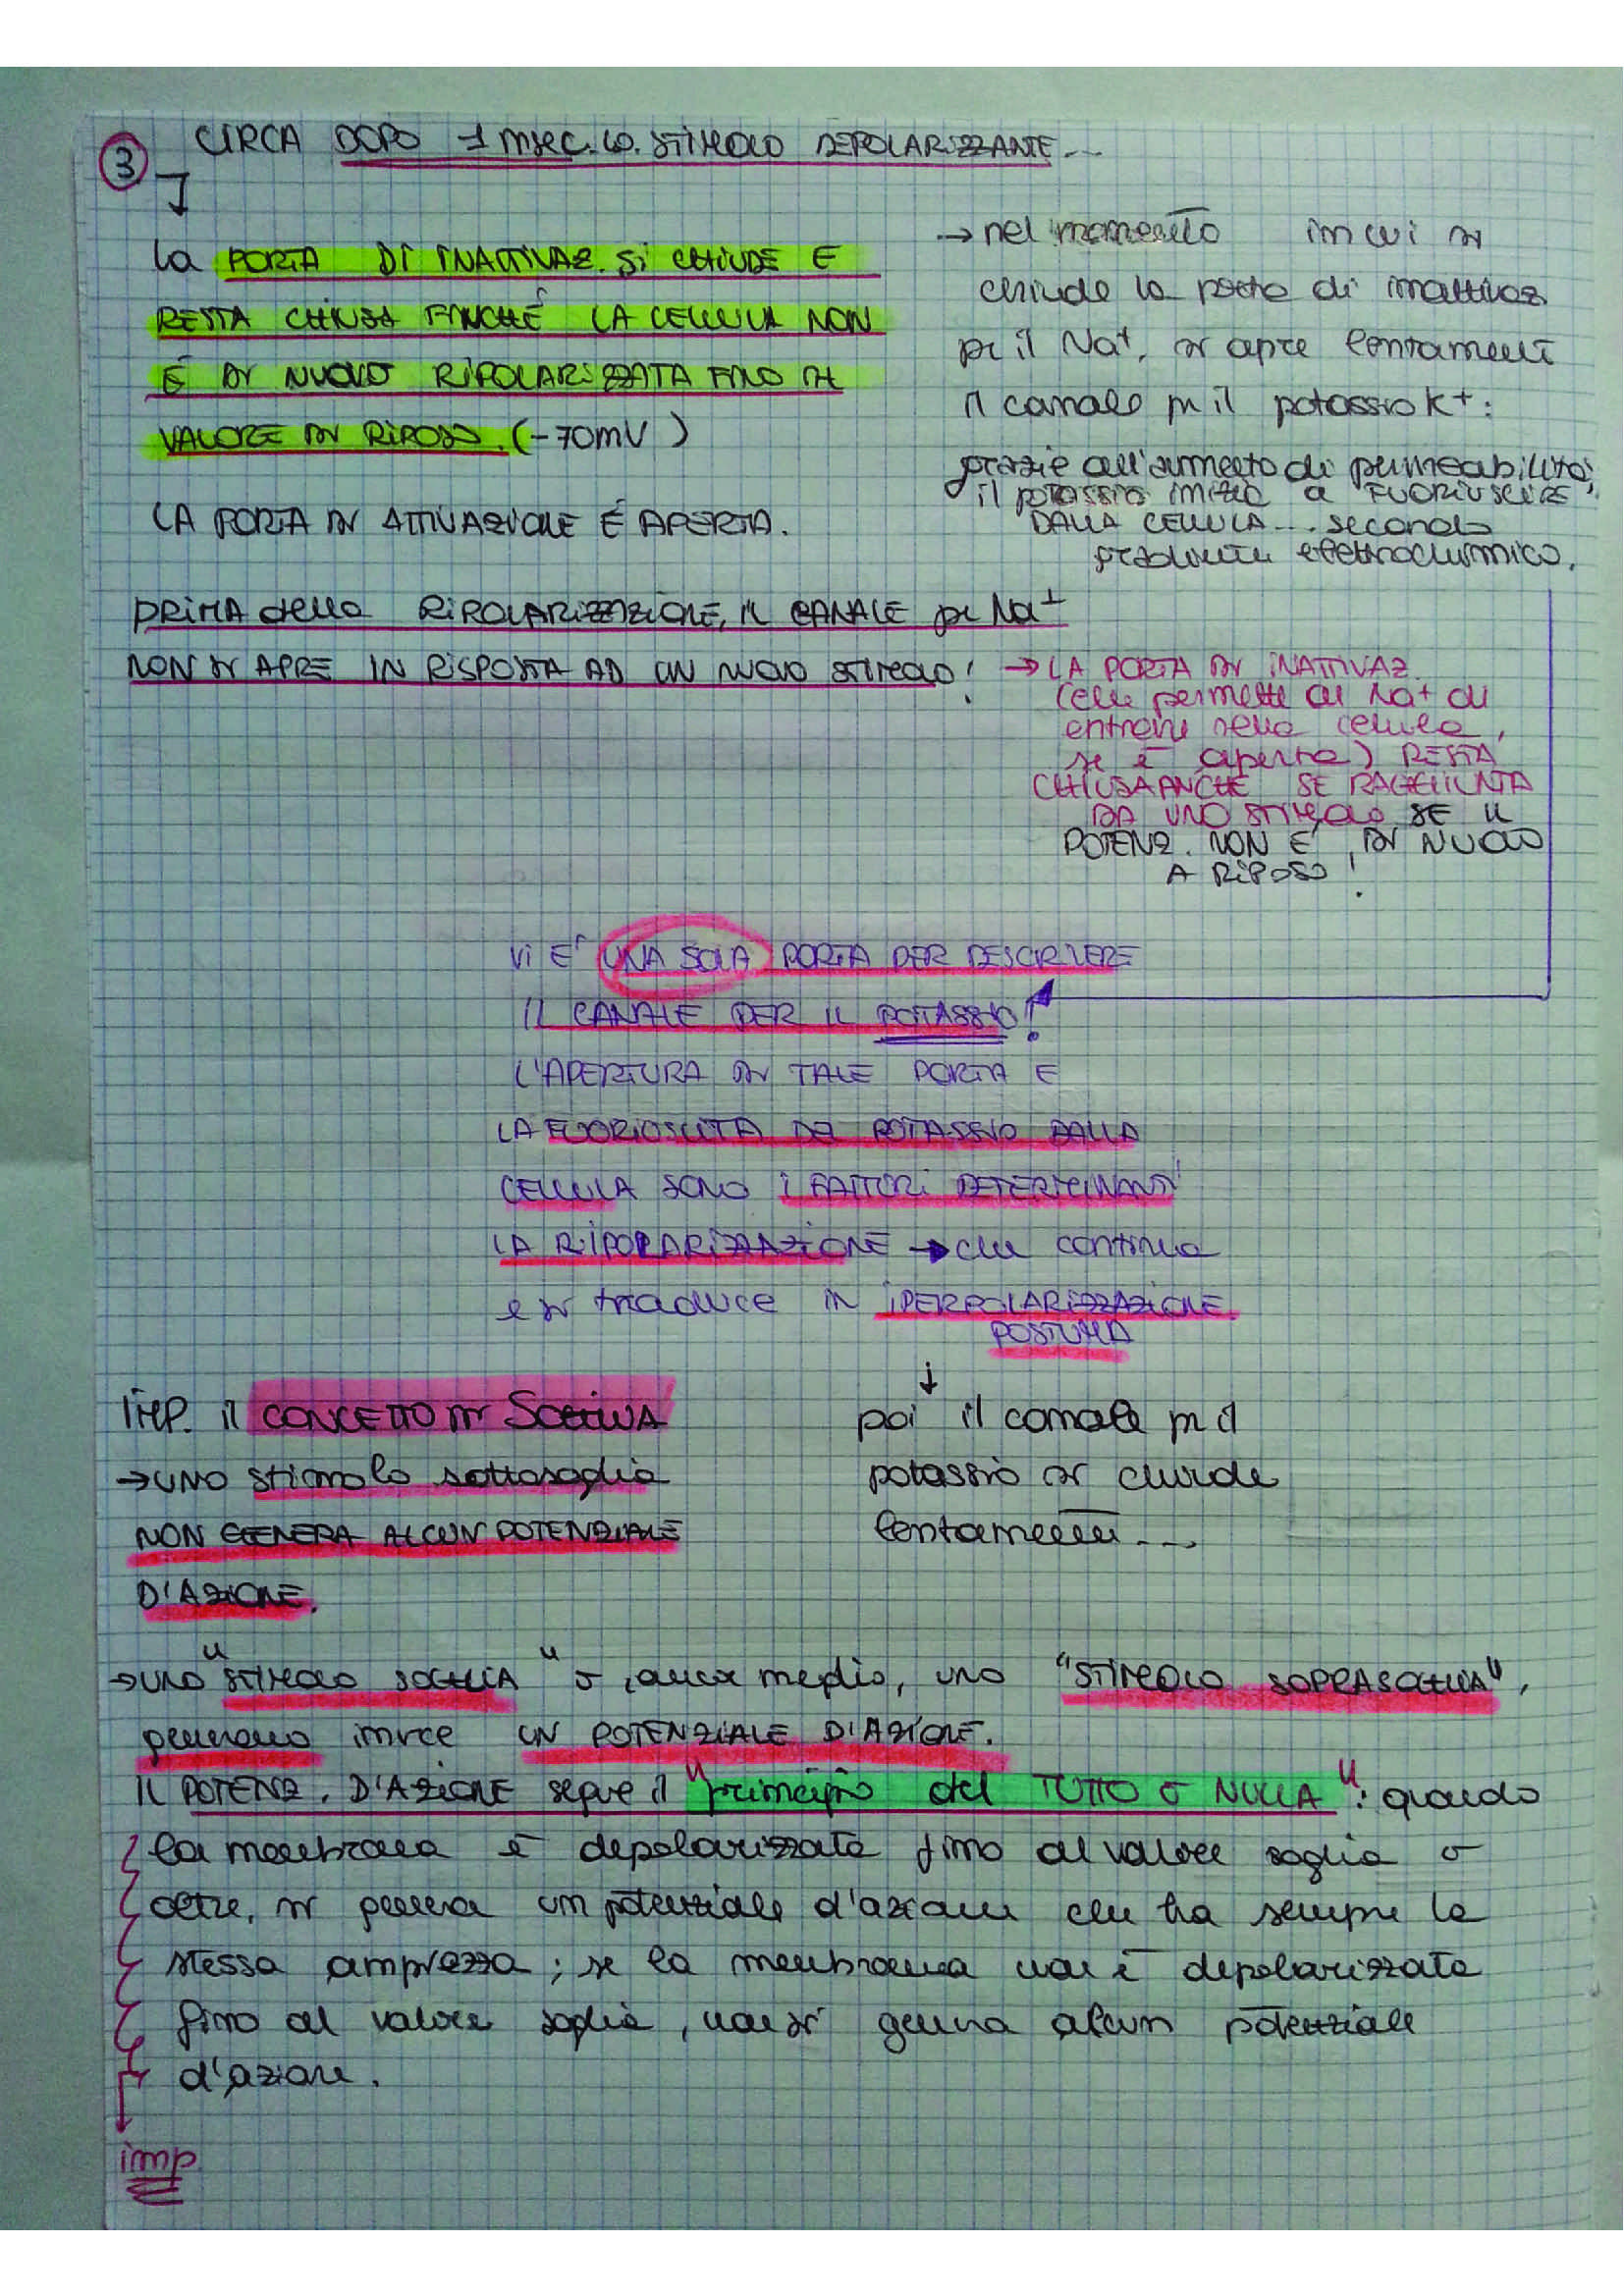 3 CIRCA DOPO 1 msec. lo STIMOLO DEPOLARIZZANTE...
la PORTA DI INATTIVAZ. Si CHIUDE E
RESTA CHIUSA FINCHÉ LA CELLULA NON
É DI NUOVO RIPOLARIZZATA FINO AL
VALORE DI RIPOSO. (-70mV)
LA PORTA DI ATTIVAZIONE É APERTA.
→ nel momento in cui si
chiude la porta di inattivaz
per il Na+, si apre lentamente
il canale per il potassio K+:
grazie all'aumento di permeabilità,
il potassio inizia a FUORIUSCIRE
DALLA CELLULA... secondo
gradiente elettrochimico.
PRIMA della RIPOLARIZZAZIONE, IL CANALE per Na+
NON SI APRE IN RISPOSTA AD UN NUOVO STIMOLO!
→ LA PORTA DI INATTIVAZ.
(che permette al Na+ di
entrare nella cellula,
se è aperta) RESTA
CHIUSA ANCHE SE RAGGIUNTA
DA UNO STIMOLO SE IL
POTENZ. NON E' DI NUOVO
A RIPOSO!
Vi E' UNA SOLA PORTA PER DESCRIVERE
IL CANALE PER IL POTASSIO!
L'APERTURA DI TALE PORTA E
LA FUORIUSCITA DEL POTASSIO DALLA
CELLULA SONO I FATTORI DETERMINANTI
LA RIPOLARIZZAZIONE → che continua
e si traduce IN IPERPOLARIZZAZIONE
POSTUMA
↓
poi il canale per il
potassio si chiude
lentamente...
IMP. il CONCETTO DI SOGLIA
→ UNO stimolo sottosoglia
NON GENERA ALCUN POTENZIALE
D'AZIONE.
→ UNO "STIMOLO SOGLIA" o, ancor meglio, uno "STIMOLO SOPRASOGLIA",
generano invece UN POTENZIALE D'AZIONE.
IL POTENZ. D'AZIONE segue il "principio del TUTTO O NULLA": quando
la membrana è depolarizzata fino al valore soglia o
oltre, si genera un potenziale d'azione che ha sempre la
stessa ampiezza; se la membrana non è depolarizzata
fino al valore soglia, non si genera alcun potenziale
d'azione.
imp